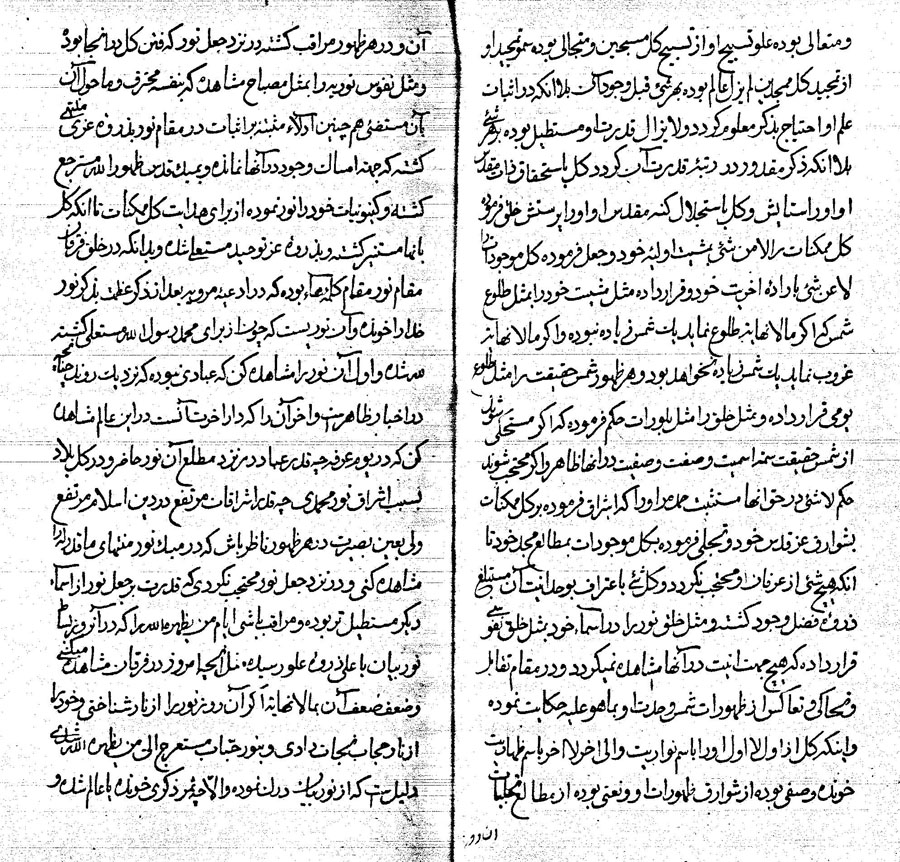 و متعالی بوده علو تسبیح او از تسبیح کل مسبحین و متجالی بوده سمو تمجید او
از تمجید کل ممجدین لم یزل عالم بوده بهر شئ قبل وجود آن بلا انکه در اثبات
علم او احتیاج بذکر معلوم گردد و لا یزال قدرت او مستطیل بوده بهر شئ
بلا انکه ذکر مقدور در رتبهٔ قدرت آن گردد کل باستحقاق ذات مقدس
او او را ستایش و کل باستجلال کنه مقدس او او را پرستش خلق فرموده
کل ممکنات را لا من شئ بمشیت اولیهٔ خود و جعل فرموده کل موجودات را
لا عن شئ باراده اخریت خود و قرار داده مثل مشیت خود را بمثل طلوع
شمس که اگر ما لا نهایه طلوع نماید یك شمس زیاده نبوده و اگر ما لا نهایة
غروب نماید یك شمس زیاده نخواهد بود و هر ظهور شمس حقیقت را مثل طلوع
یومی قرار داده و مثل خلق را مثل بلورات حکم فرموده که اگر مستجلی شوند
از شمس حقیقت سمة اسمیت و صفت وصفیت در انها ظاهر و اگر محتجب شوند
حکم لا شئ در حق انها مستثبت حمد مر او را که اشراق فرموده بر کل ممکنات
بشوارق عز قدس خود و تجلی فرموده بکل موجودات بمطالع مجد خود تا
انکه هیچ شئ از عرفان او محتجب نگردد و کل شئ باعتراف بوحدانیت آن مستبلغ
ذروهٔ فضل وجود گشته و مثل خلق نور را در اسماء خود بمثل خلق نفوس
قرار داده که هیچ جهت انیت در آنها مشاهده نمیگردد و در مقام تقابل
و تحاکی و تعاکس از ظهورات شمس وحدت او بما هو علیه حکایت نموده
و اینکه کل از اول لا اول او را باسم نواریت و الی اخر لا اخر باسم ظهاریت
خوانده وصفی بوده از شوارق ظهورات او و نعتی بوده از مطالع تجلیات
ان و در
آن و در هر ظهور مراقب گشته در نزد جعل نور که فتن کل در انجا بوده
و مثل نفوس نوریه را بمثل مصباح مشاهده که بنفسه محترق و ما حول آن
بآن مستضئ هم چنین ادلاء مثبته بر اثبات در مقام نور بذروه عزی
گشته که جهة امساك وجود در آنها نمانده و بمبدء قدس ظهور الله مسترجع
گشته و کینونیات خود را نور نموده از برای هدایت کل ممکنات تا انکه کل
بانها مستنیر گشته و بذروهٔ عز توحید مستعلی شده و بدانکه در خلق فرقان
مقام نور مقام کل بهاء بوده که در ادعیه مرویه بعد از ذکر عظمت بذکر نور
خدا را خوانده و آن نوریست که چون از برای محمد رسول الله مستعلی گشته
شده و اول آن نور را مشاهده کن که عبادی نبوده که نزدیك روند چنانچه
در اخبار ظاهر است و اخر آن را که دار اخرت آنست در این عالم مشاهده
کن که در یوم عرفه چه قدر عباد در نزد مطلع آن نور حاضر و در کل بلاد
بسبب اشراق نور محمدی چه قدر اشراقات مرتفع در دین اسلام مرتفع
ولی بعین بصیرت در هر ظهور ناظر باش که در مبدء نور منتهای ما قدر الله را
مشاهده کنی و در نزد جعل نور محتجب نگردی که قدرت بر جعل نور از اسماء
دیگر مستطیل تر بوده و مراقب باشی ایام من یظهره الله را که در آن روز
نور بیان باعلی ذروهٔ علو رسیده مثل آنچه امروز در فرقان مشاهده میکنی
و ضعف ضعف آن بما لا نهایة اگر آن روز نور را از نار شناختی و خود را
از نار حجاب نجات دادی و بنور حباب مستعرج الی من یظهره الله شدی
دلیل است که از نور بیان درك نموده و الا چه ثمر ذکری خوانده یا عالم شده و